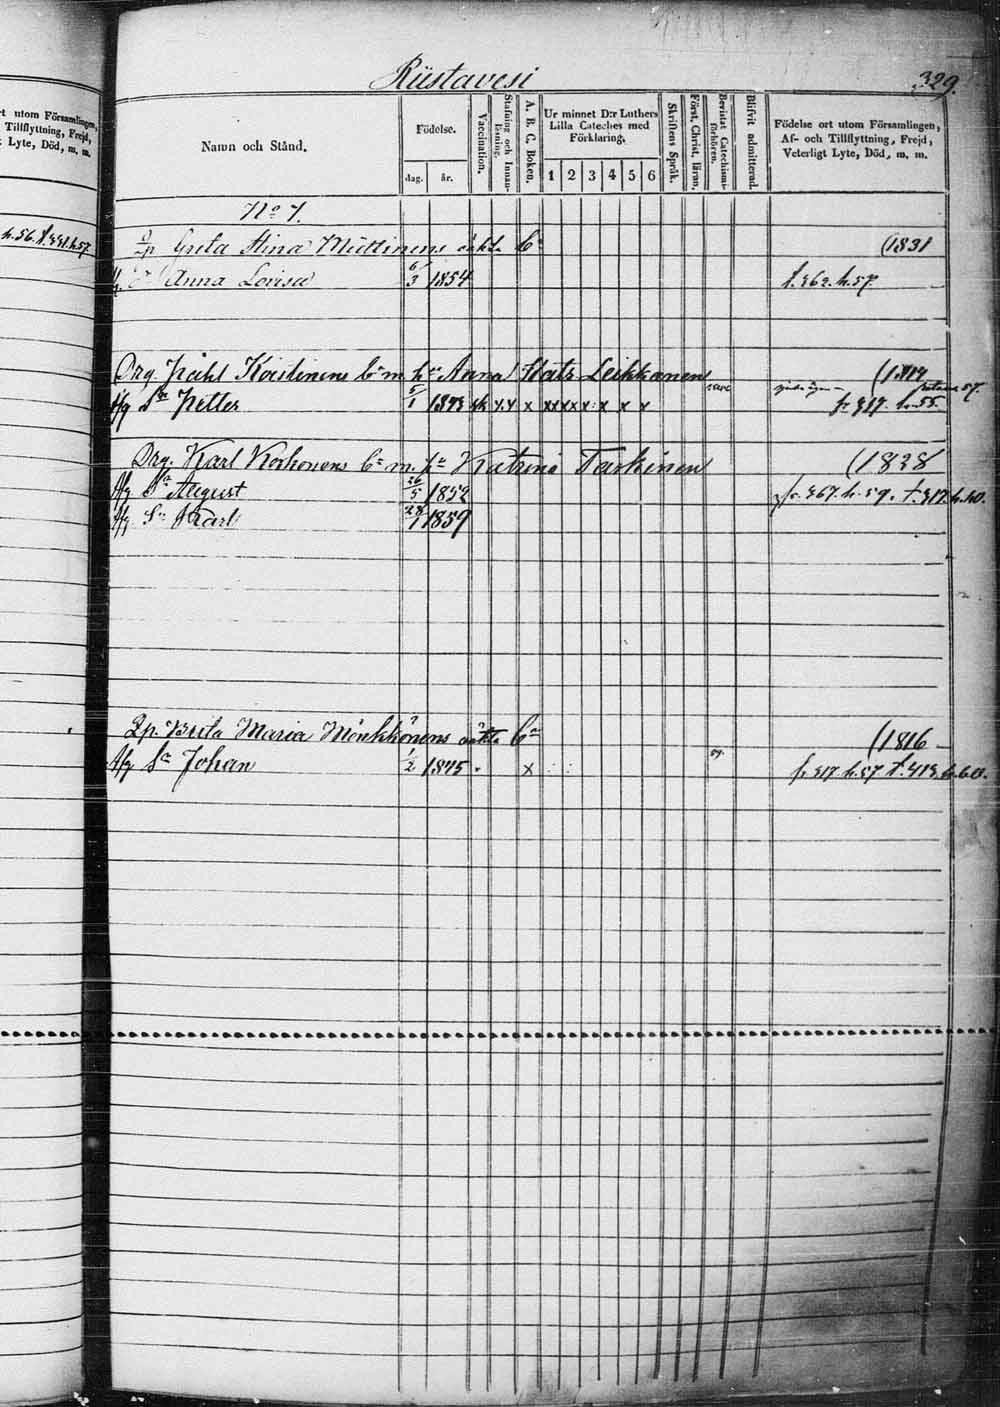 rt utom Församlingen,
Tillflyttning, Frejd,
Lyte, Död, m. m.
h.56. t.331.h.57.
Riistavesi
329.
Namn och Stånd.
Födelse.
dag. år.
Vaccination.
Stafning och Innanläsning.
A. B. C. Boken.
Ur minnet D:r Luthers Lilla Cateches med Förklaring.
1 2 3 4 5 6
Skriftens Språk.
Först. Christ. läran.
Bevistat Catechismiförhören.
Blifvit admitterad.
Födelse ort utom Församlingen,
Af- och Tillflyttning, Frejd,
Veterligt Lyte, Död, m. m.
No 7.
Greta Stina Miettinens oäkta b (1831
Anna Lovisa 6/3 1854 t.362.h.57
Drg Påhl Koistinens bn m. hu Anna Leikkanen
Sn Petter 5/1 1843 x x x x x x x fr 317. h.55.
Drg. Karl Korhonens bn m. hu Katrina Tarkinen (1828
Sn August 26/5 1852 fr.367.h.59. t.317.h.60.
Sn Karl 1859
Qp. Brita Maria Mönkkönens oäkta bn (1816
Sn Johan 1/2 1845 x fr 317.h.57 t.413.h.60.